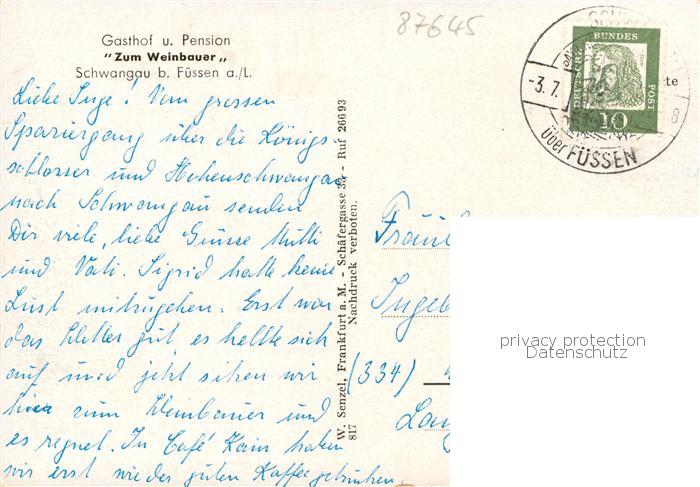 87645
Gasthof u. Pension
"Zum Weinbauer„
Schwangau b. Füssen a./L.
Liebe Inge! Vom grossen
Spaziergang über die Königs-
schlösser und Hohenschwangau
nach Schwangau senden
Dir viele, liebe Grüsse Mutti
und Vati. Sigrid hatte keine
Lust mitzugehen. Erst war
das Wetter gut es hellte sich
auf und jetzt sitzen wir
hier zum Weinbauer und
es regnet. In Café Kain haben
wir erst wieder guten Kaffee getrunken.
W. Senzel, Frankfurt a. M. - Schäfergasse 33 - Ruf 26693
Nachdruck verboten.
817
DEUTSCHE
BUNDES
POST
10
-3.7.
über FÜSSEN
8
te
Fräul
Ingeb
(334)
privacy protection
Datenschutz